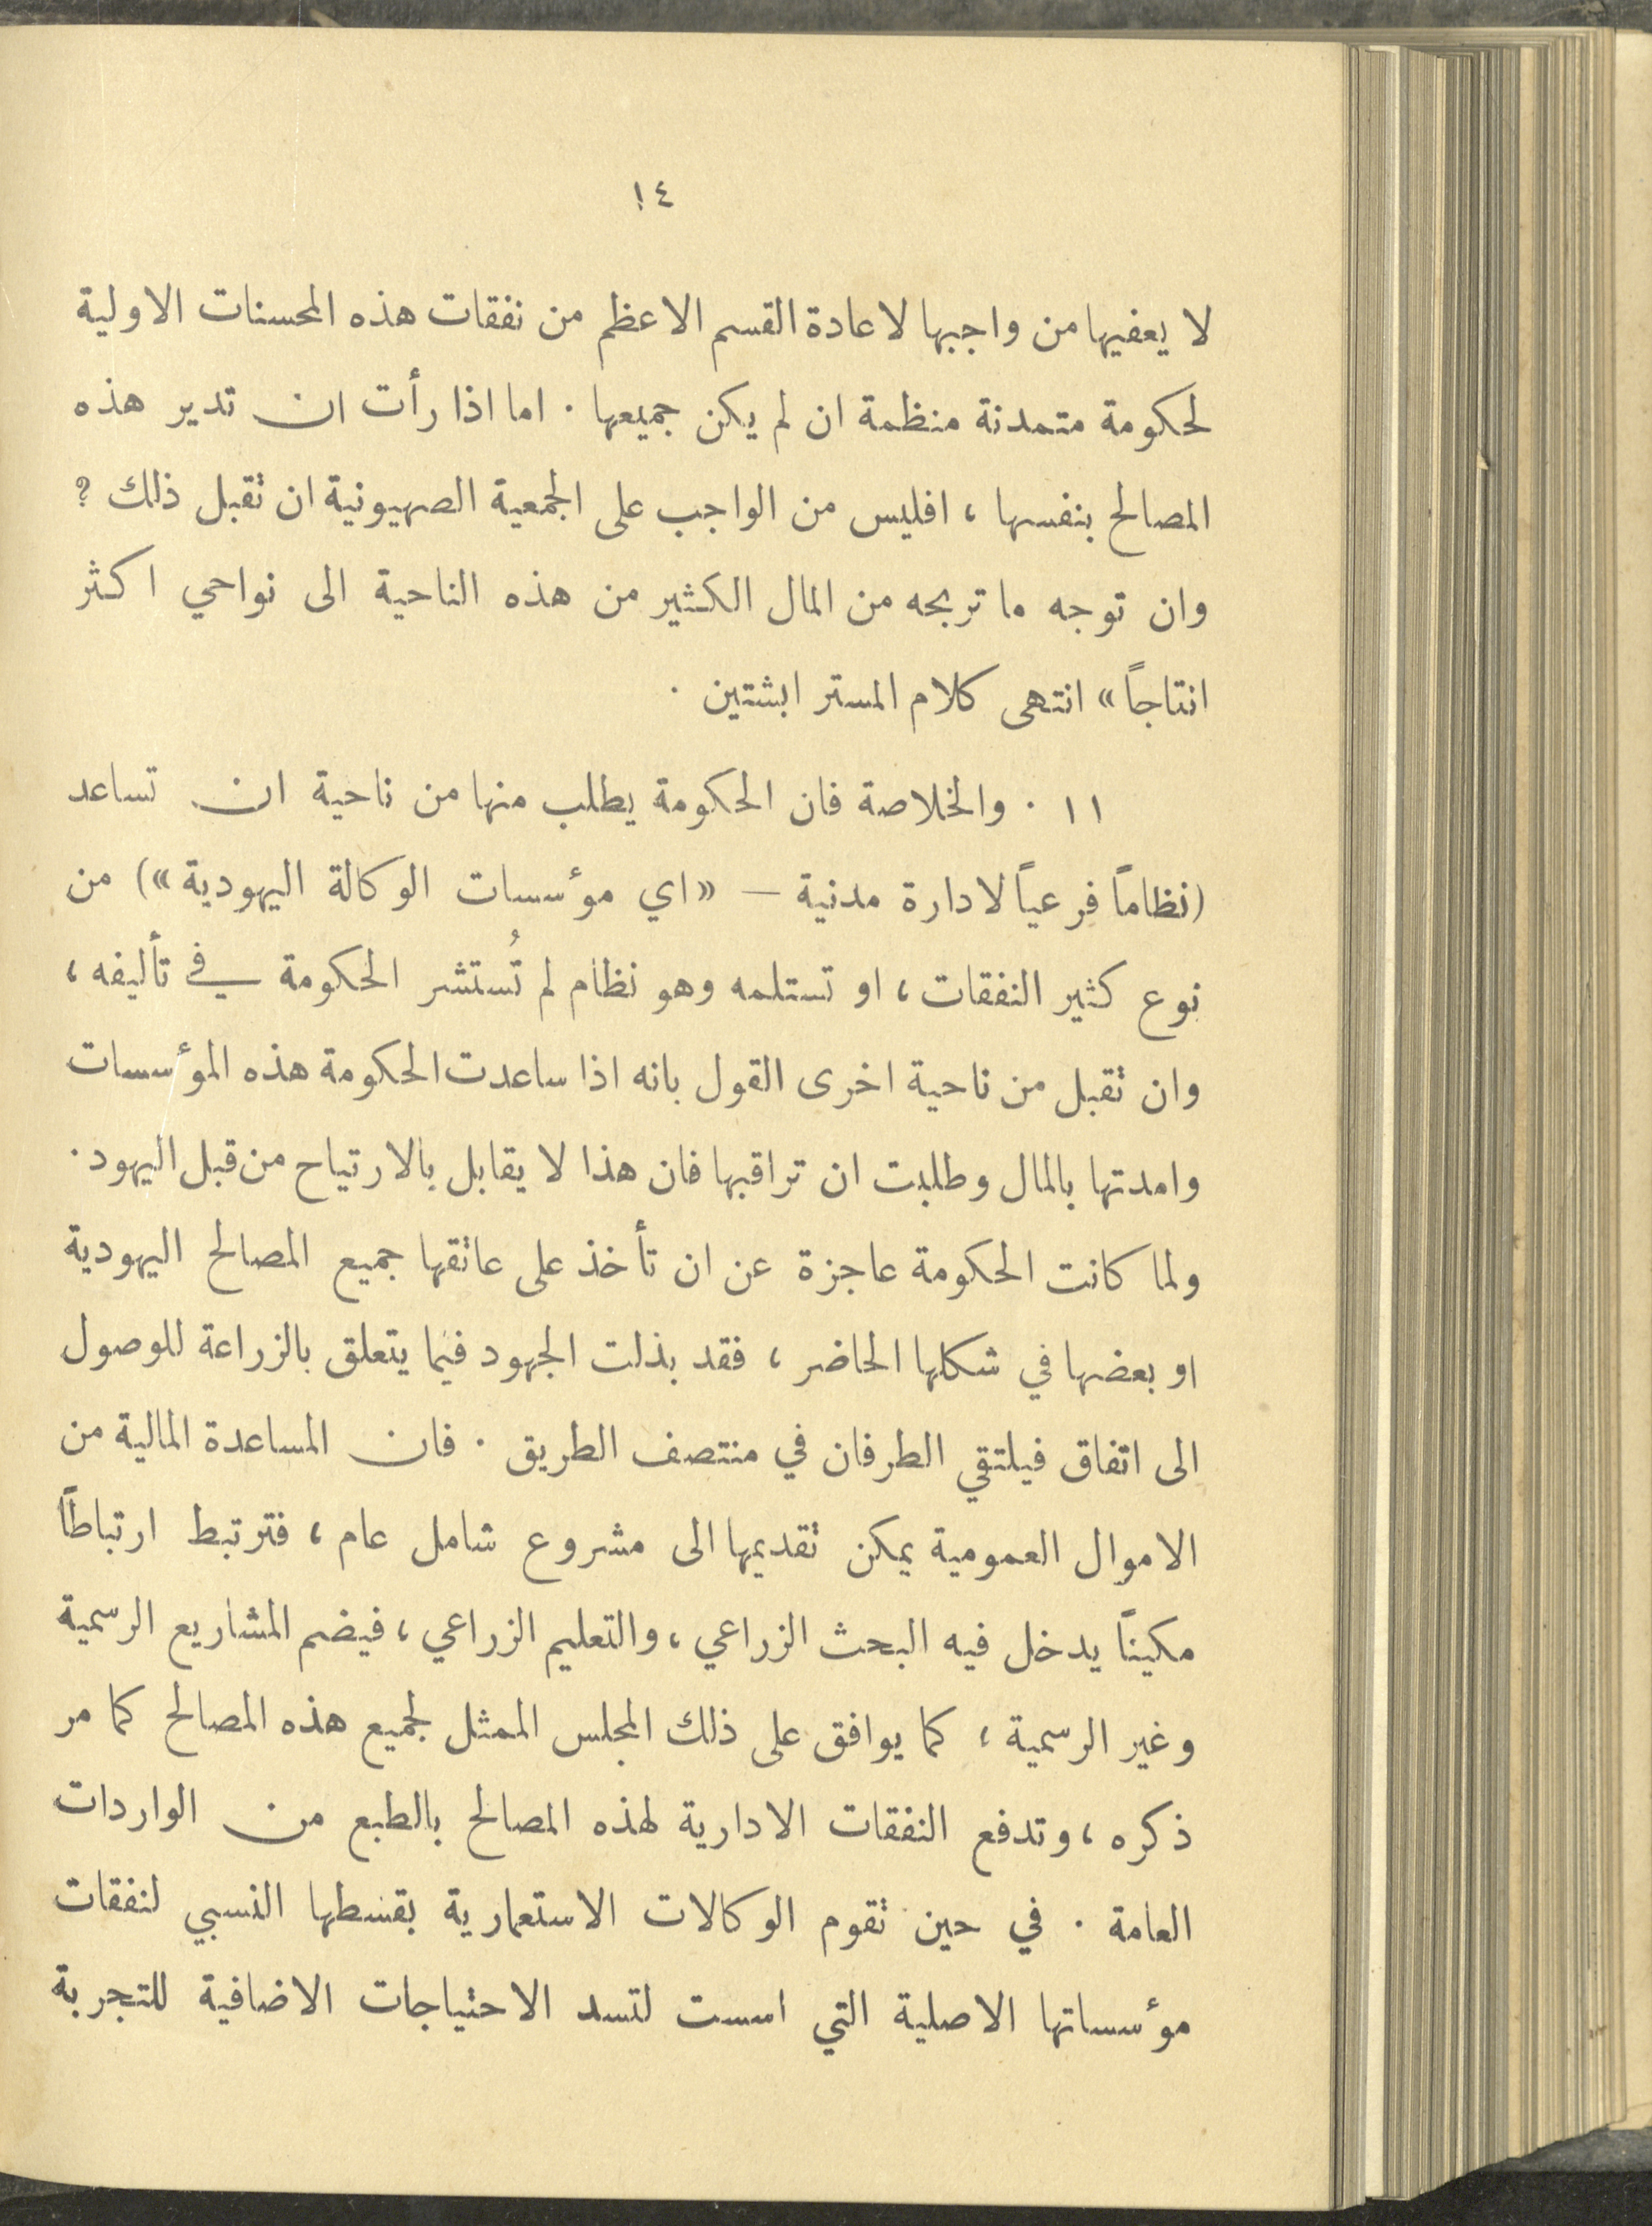 ١٤
لا يعفيها من واجبها لاعادة القسم الاعظم من نفقات هذه المحسنات الاولية
لحكومة متمدنة منظمة ان لم يكن جميعها . اما اذا رأت ان تدير هذه
المصالح بنفسها ، افليس من الواجب على الجمعية الصهيونية ان تقبل ذلك ?
وان توجه ما تربحه من المال الكثير من هذه الناحية الى نواحي اكثر
انتاجاً » انتهى كلام المستر ابشتين .
١١ . والخلاصة فان الحكومة يطلب منها من ناحية ان تساعد
(نظاماً فرعياً لادارة مدنية — « اي مؤسسات الوكالة اليهودية ») من
نوع كثير النفقات ، او تستلمه وهو نظام لم تُستشر الحكومة في تأليفه ،
وان تقبل من ناحية اخرى القول بانه اذا ساعدت الحكومة هذه المؤسسات
وامدتها بالمال وطلبت ان تراقبها فان هذا لا يقابل بالارتياح من قبل اليهود .
ولما كانت الحكومة عاجزة عن ان تأخذ على عاتقها جميع المصالح اليهودية
او بعضها في شكلها الحاضر ، فقد بذلت الجهود فيما يتعلق بالزراعة للوصول
الى اتفاق فيلتقي الطرفان في منتصف الطريق . فان المساعدة المالية من
الاموال العمومية يمكن تقديمها الى مشروع شامل عام ، فترتبط ارتباطاً
مكيناً يدخل فيه البحث الزراعي ، والتعليم الزراعي ، فيضم المشاريع الرسمية
وغير الرسمية ، كما يوافق على ذلك المجلس الممثل لجميع هذه المصالح كما مر
ذكره ، وتدفع النفقات الادارية لهذه المصالح بالطبع من الواردات
العامة . في حين تقوم الوكالات الاستعمارية بقسطها النسبي لنفقات
مؤسساتها الاصلية التي اسست لتسد الاحتياجات الاضافية للتجربة